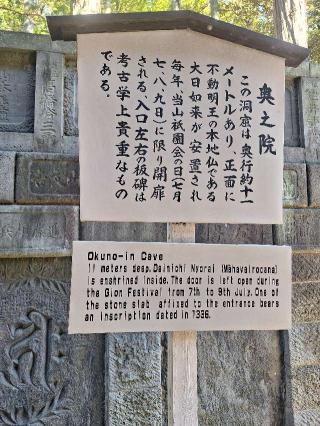 奥之院
この洞窟は奥行約十一
メートルあり、正面に
不動明王の本地仏である
大日如来が安置され
毎年、当山祇園会の日(七月
七、八、九日)に限り開扉
される。入口左右の板碑は
考古学上貴重なもの
である。
Okuno-in Cave
11 meters deep. Dainichi Nyorai (Mahavairocana)
is enshrined inside. The door is left open during
the Gion Festival from 7th to 9th July. One of
the stone slab affixed to the entrance bears
an inscription dated in 1336.